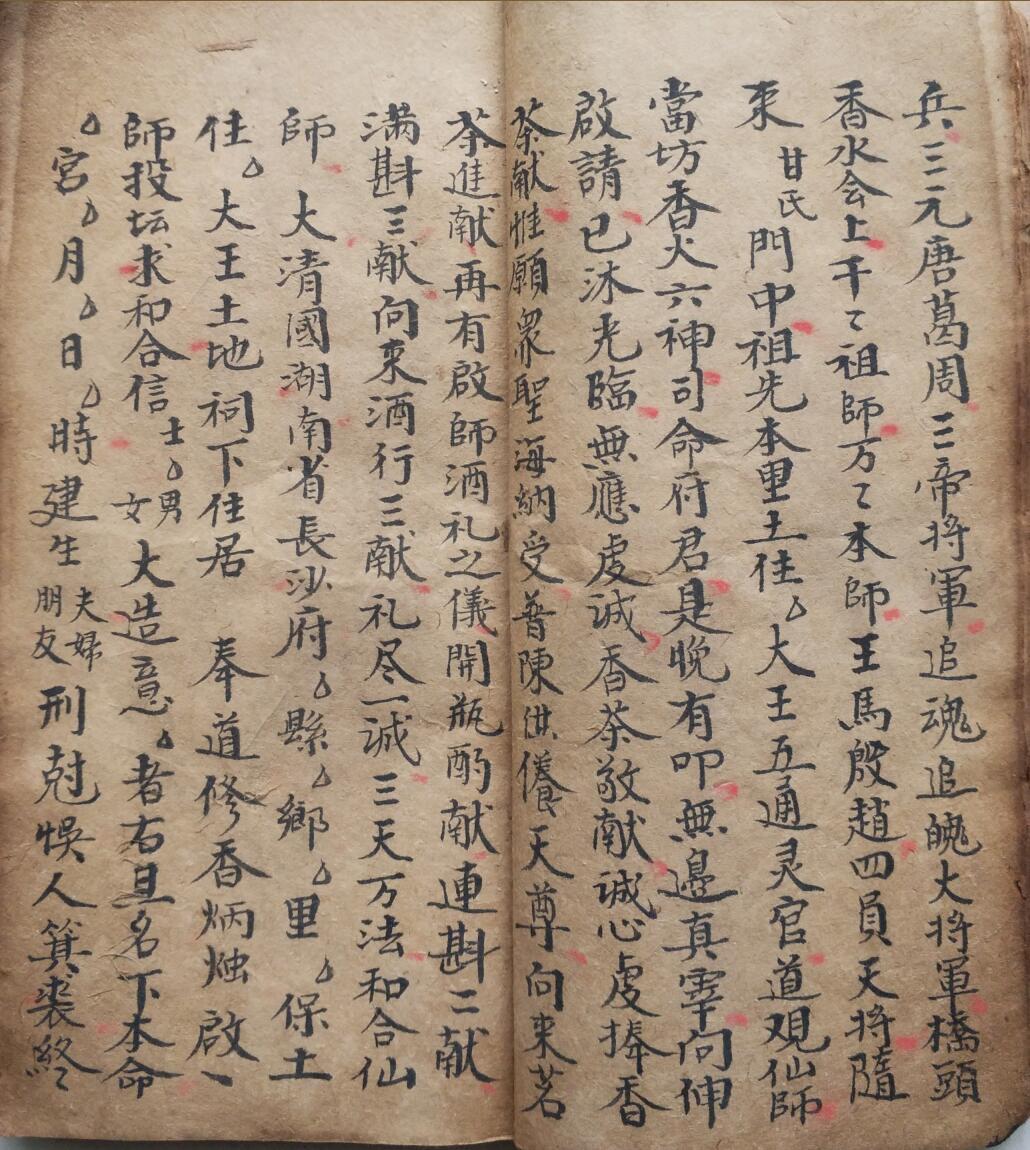 兵三元唐葛周三帝将軍追魂追魄大将軍橋頭
香水会上千〻祖師万〻本師王馬殷趙四員天将隨
来甘氏門中祖先本里土住〇大王五通灵官道观仙師
當坊香火六神司命府君是晚有叩無邊真宰向伸
啟請已沐光臨無應虔诚香茶敬献诚心虔捧香
茶献惟願衆聖海納受普陳供養天尊向来茗
茶進献再有啟師酒礼之儀開瓶酌献連斟二献
满斟三献向来酒行三献礼尽一诚三天万法和合仙
師大清國湖南省長沙府〇縣〇鄉〇里〇保土
住〇大王土地祠下住居奉道修香炳烛啟一
師投坛求和合信士〇男女大造意〇者右旦名下本命
〇宫〇月〇日〇時建生夫婦朋友刑尅悞人箕裘終